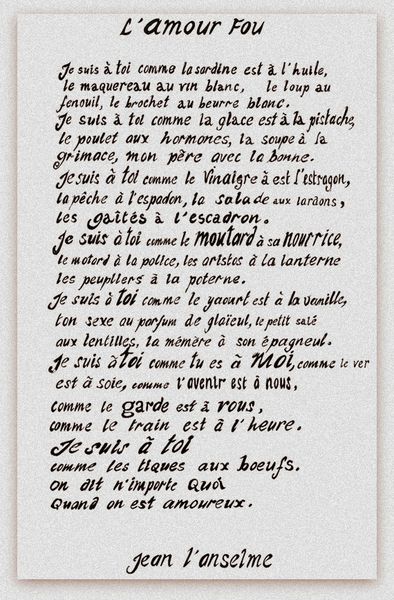 L'AMOUR FOU
Je suis à toi comme la sardine est à l'huile,
le maquereau au vin blanc, le loup au
fenouil, le brochet au beurre blanc.
Je suis à toi comme la glace est à la pistache,
le poulet aux hormones, la soupe à la
grimace, mon père avec la bonne.
Je suis à toi comme le vinaigre à est l'estragon,
la pêche à l'espadon, la salade aux lardons,
les gaîtés à l'escadron.
Je suis à toi comme le moutard à sa nourrice,
le motard à la police, les aristos à la lanterne
les peupliers à la poterne.
Je suis à toi comme le yaourt est à la vanille,
ton sexe au parfum de glaïeul, le petit salé
aux lentilles, la mémère à son épagneul.
Je suis à toi comme tu es à moi, comme le ver
est à soie, comme l'avenir est à nous,
comme le garde est à vous,
comme le train est à l'heure.
Je suis à toi
comme les tiques aux boeufs.
On dit n'importe quoi
Quand on est amoureux.
Jean l'anselme